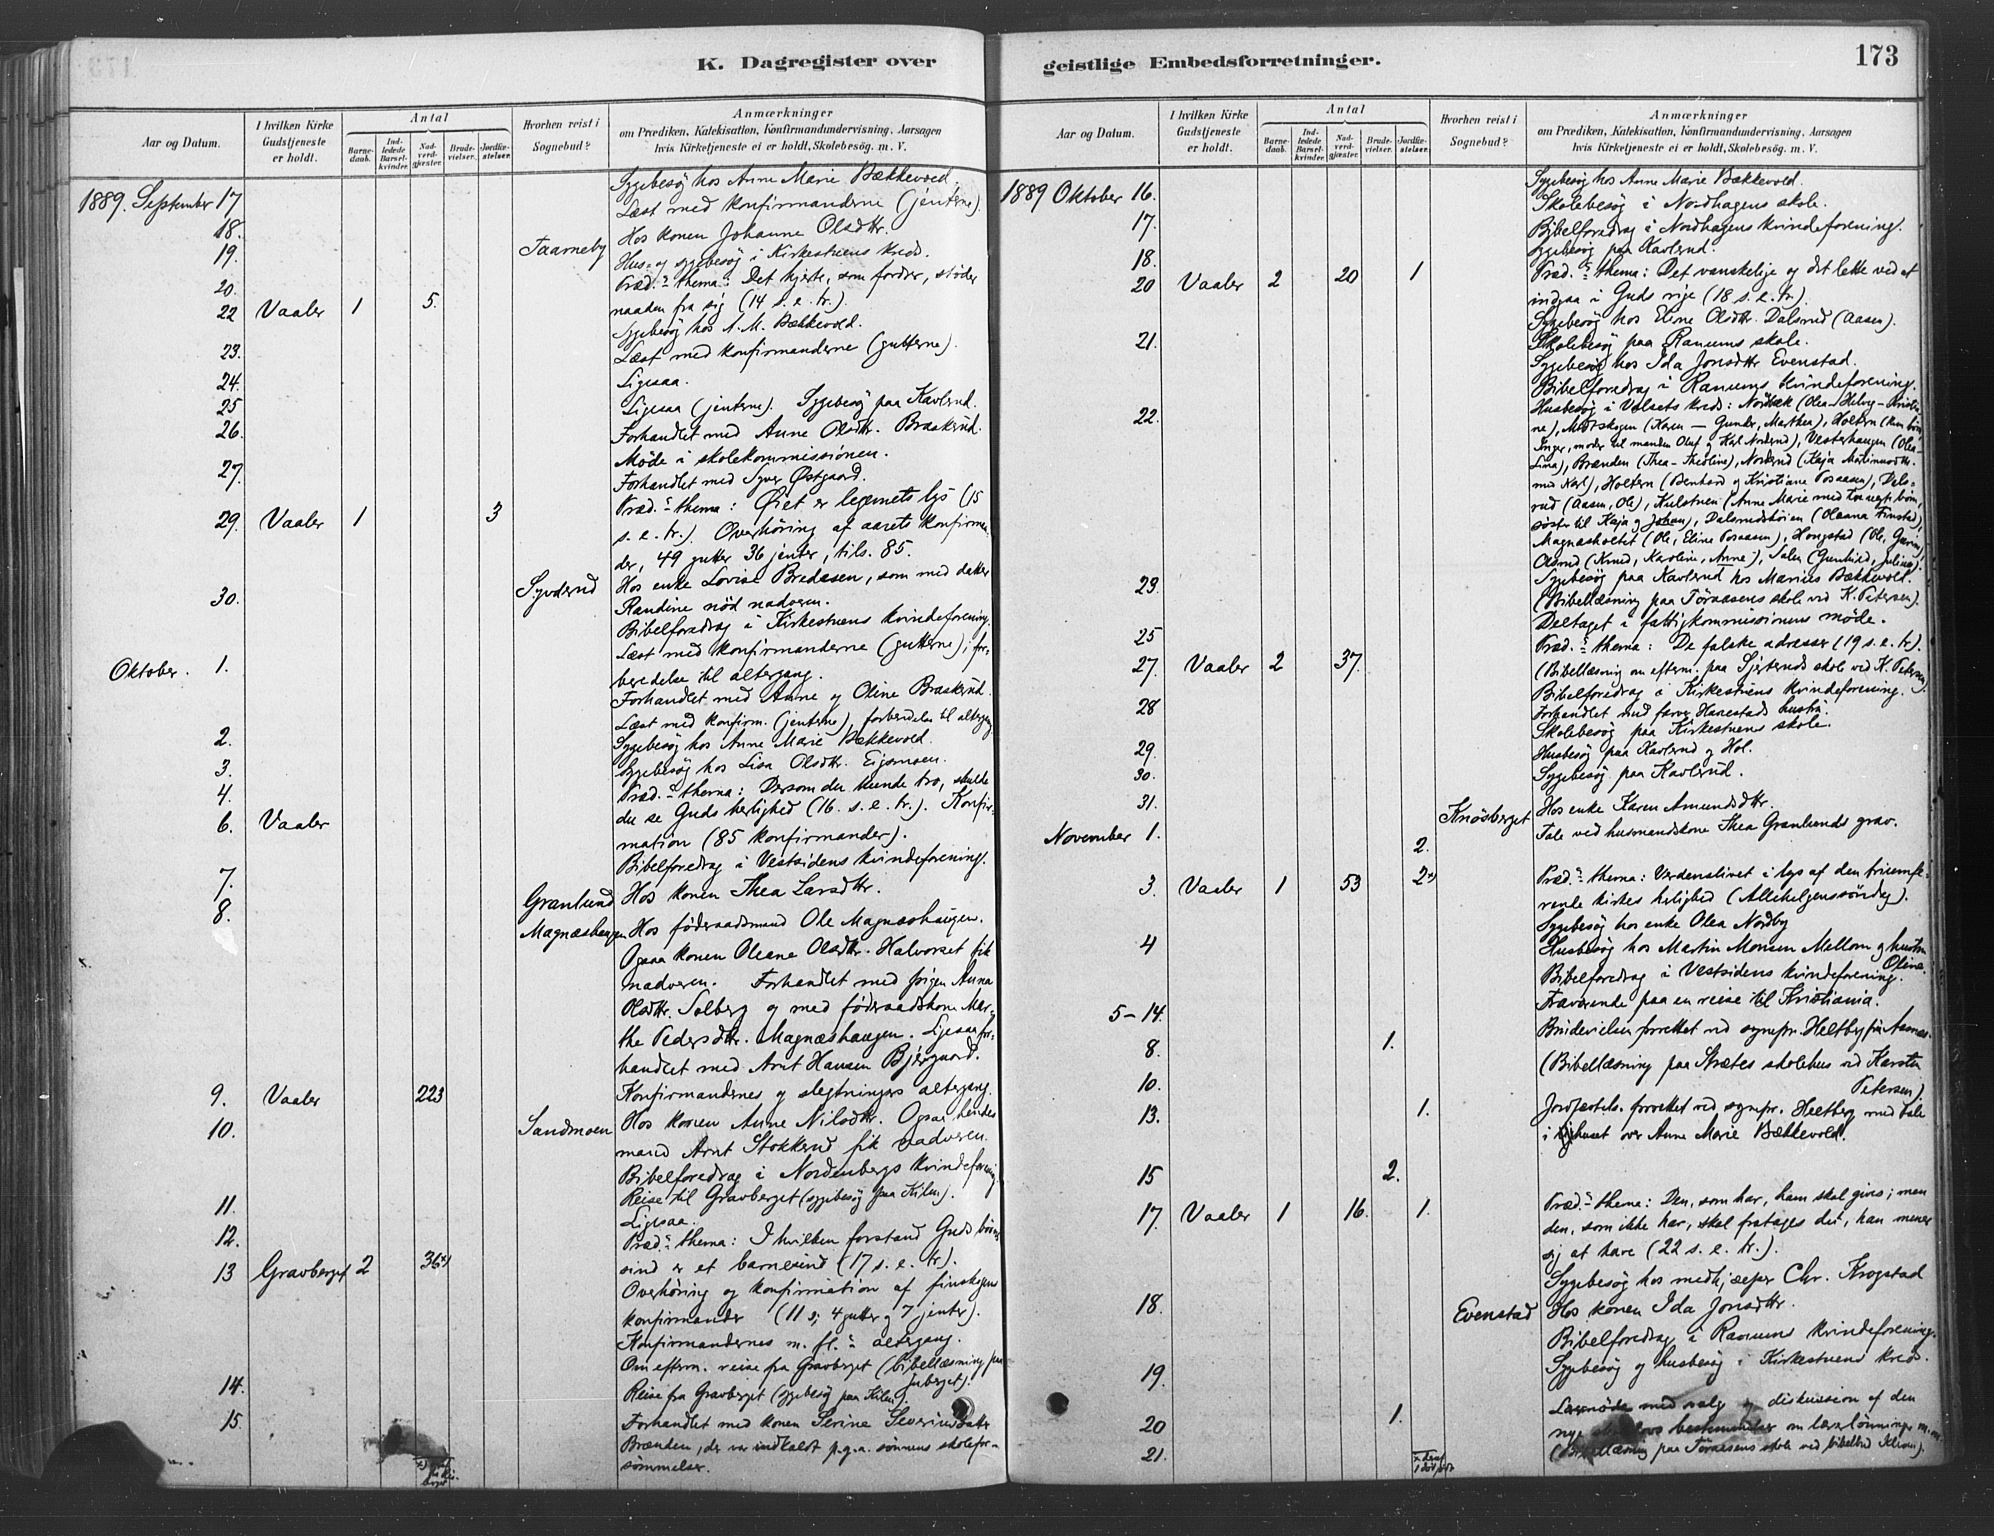 K. Dagregister over
Aar og Datum.
I hvilken Kirke Gudstjeneste er holdt.
Antal
Barnedaab.
Indledede Barselkvinder.
Nadverdgjæster.
Brudevielser.
Jordfæstelser.
Hvorhen reist i Sognebud?
Anmærkninger
om Prædiken, Katekisation, Konfirmandundervisning, Aarsagen
hvis Kirketjeneste ei er holdt, Skolebesøg. m. V.
1889. September 17
Sygebesøg hos Anne Marie Bækkevold.
Læst med konfirmanderne (jenterne).
18. Hos konen Johanne Olsdtr.
19. Taarneby
Hus- og sygebesøg i Kirkestuens kreds.
20.
22 Vaaler 1 5.
Præd.s thema: Det hjerte, som fordrer, støder
naaden fra sig (14 s. e. tr.).
Sygebesøg hos A. M. Bækkevold.
23. Læst med konfirmanderne (gutterne).
24. Ligesaa.
25 Ligesaa (jenterne). Sygebesøg paa Kavlerud.
26. Forhandlet med Anne Olsdtr. Braskerud.
Møde i skolekommissionen.
27. Forhandlet med Syver Østgaard.
29. Vaaler 1 3
Præd.s thema: Øiet er legemets lys (15
s. e. tr.). Overhøring af aarets konfirman-
der, 49 gutter 36 jenter, tils. 85.
30. Syverud
Hos enke Lovise Bredesen, som med datter
Randine nød nadveren.
Bibelforedrag i Kirkestuens kvindeforening.
Oktober. 1.
Læst med konfirmanderne (gutterne); for-
beredelse til altergang.
Forhandlet med Anne og Oline Braskerud.
2. Læst med konfirm. (jenterne), forberedelse til altergang
3. Sygebesøg hos Anne Marie Bækkevold.
4. Sygebesøg hos Lisa Olsdtr. Eismoen.
6. Vaaler
Præd.s thema: Dersom du kunde tro, skulde
du se Guds herlighed (16. s. e. tr.). Konfir-
mation (85 konfirmander).
7. Bibelforedrag i Vestsidens kvindeforening.
8. Granlund Hos konen Thea Larsdtr.
Magnæshaugen Hos føderaadsmand Ole Magnæshaugen.
Ogsaa konen Oleane Olsdtr. Halvorset fik
nadveren. Forhandlet med pigen Anna
Olsdtr. Solberg og med føderaadskone Mar-
the Pedersdtr. Magnæshaugen. Ligesaa for-
handlet med Arnt Hansen Bjørgaard.
9. Vaaler 223 Konfirmandernes og slegtningers altergang.
10. Sandmoen Hos konen Anne Nilsdtr. Ogsaa hendes
mand Arnt Stokkerud fik nadveren.
Bibelforedrag i Nordenbergs kvindeforening.
11. Reise til Gravberget (sygebesøg paa Kilen).
12. Ligesaa.
13 Gravberget 2 36x)
Præd.s thema: I hvilken forstand Guds børns
sind er et barnesind (17 s. e. tr.).
Overhøring og konfirmation af finskogens
konfirmander (11 s; 4 gutter og 7 jenter).
Konfirmandernes m. fl.s altergang.
Om efterm. reise fra Gravberget (bibellæsning paa
Juberget).
14. Reise fra Gravberget (sygebesøg paa Kilen).
15. Forhandlet med konen Serine Severinsdatter
Brænden, der var indkaldt p.g.a. sønnens skolefor-
sømmelser.
geistlige Embedsforretninger.
173
Aar og Datum.
I hvilken Kirke Gudstjeneste er holdt.
Antal
Barnedaab.
Indledede Barselkvinder.
Nadverdgjæster.
Brudevielser.
Jordfæstelser.
Hvorhen reist i Sognebud?
Anmærkninger
om Prædiken, Katekisation, Konfirmandundervisning, Aarsagen
hvis Kirketjeneste ei er holdt, Skolebesøg. m. V.
1889 Oktober 16.
Sygebesøg hos Anne Marie Bækkevold.
Skolebesøg i Nordhagens skole.
17. Bibelforedrag i Nordhagens kvindeforening.
18. Sygebesøg paa Kavlerud.
20 Vaaler 2 20 1
Præd.s thema: Det vanskelige og det lette ved at
indgaa i Guds rige (18 s. e. tr.).
Sygebesøg hos Eline Olsdtr. Dalsrud (Aasen).
21. Skolebesøg paa Ranums skole.
Sygebesøg hos Ida Jonsdtr Evenstad.
Bibelforedrag i Ranums kvindeforening.
22. Husbesøg i Vålsets kreds: Nordbæk (Olea – Helvig – Kristi-
ne), Motskogen (Karen – Gunder, Marthea), Holtern (kun børn
Inger, moder til manden Oluf og Karl Norderud), Vesterhaugen (Olea –
Lina), Brænden (Thea – Theoline), Norderud (Kaja Martinusdtr.
med Karl), Holtern (Bernhard og Kristiane Posaasen), Dals-
rud (Aasen, Ole), Kulstuen (Anne Marie med børn,
søster til Kaja og Johan), Dalsrudshøien (Oleana Finstad),
Magnæsholtet (Ole, Eline Posaasen), Hougstad (Ole),
Olsrud (Knud, Karoline, Anne), Solen (Gunhild, Juline).
23. Sygebesøg paa Kavlerud hos Marius Bækkevold.
(Bibellæsning paa Tøraasens skole ved K. Petersen).
25 Deltaget i fattigkommissionens møde.
27. Vaaler 2 37.
Præd.s thema: De falske adresser (19 s. e. tr.).
(Bibellæsning om efterm. paa skole ved K. Petersen)
28 Bibelforedrag i Kirkestuens kvindeforening.
Forhandlet med farver Hanestads hustru.
29. Skolebesøg paa Kirkestuens skole.
30. Husbesøg paa Kavlerud og Hol.
31. Sygebesøg paa Kavlerud.
November 1. Knøsberget Hos enke Karen Amundsdtr.
2. Tale ved husmandskone Thea Granlunds grav.
3. Vaaler 1 53 2x)
Præd.s thema: Verdenslivet i lys af den triumfe-
rende kirkes herlighed (Allehelgenssøndag).
Sygebesøg hos enke Olea Nordby
4 Husbesøg hos Martin Monsen Mellem og hustru
Oline.
Bibelforedrag i Vestsidens kvindeforening.
5–14. Fraværende paa en reise til Kristiania.
8. 1. Brudevielsen forrettet ved sognepr. Heltberg fra Aasnes.
10. (Bibellæsning paa Strætes skolehus ved Karsten
Petersen).
13. 1. Jordfæstels. forrettet ved sognepr. Heltberg med tale
i lighuset over Anne Marie Bækkevold.
15 2.
17. Vaaler 1 16. 1.
Præd.s thema: Den, som har, ham skal gives; men
den, som ikke har, skal fratages det, han mener
sig at have (22 s. e. tr.).
Sygebesøg hos medhjælper Chr. Krogstad
18. Evenstad Hos konen Ida Jonsdtr.
Bibelforedrag i Ranums kvindeforening.
19. Sygebesøg og husbesøg i Kirkestuens kreds.
20 1. Læremøde med valg og diskussion af den
nye bestemmelser om lærerlønninger m.m.
21. (Bibellæsning paa Tøraasens skole ved bibelbud).